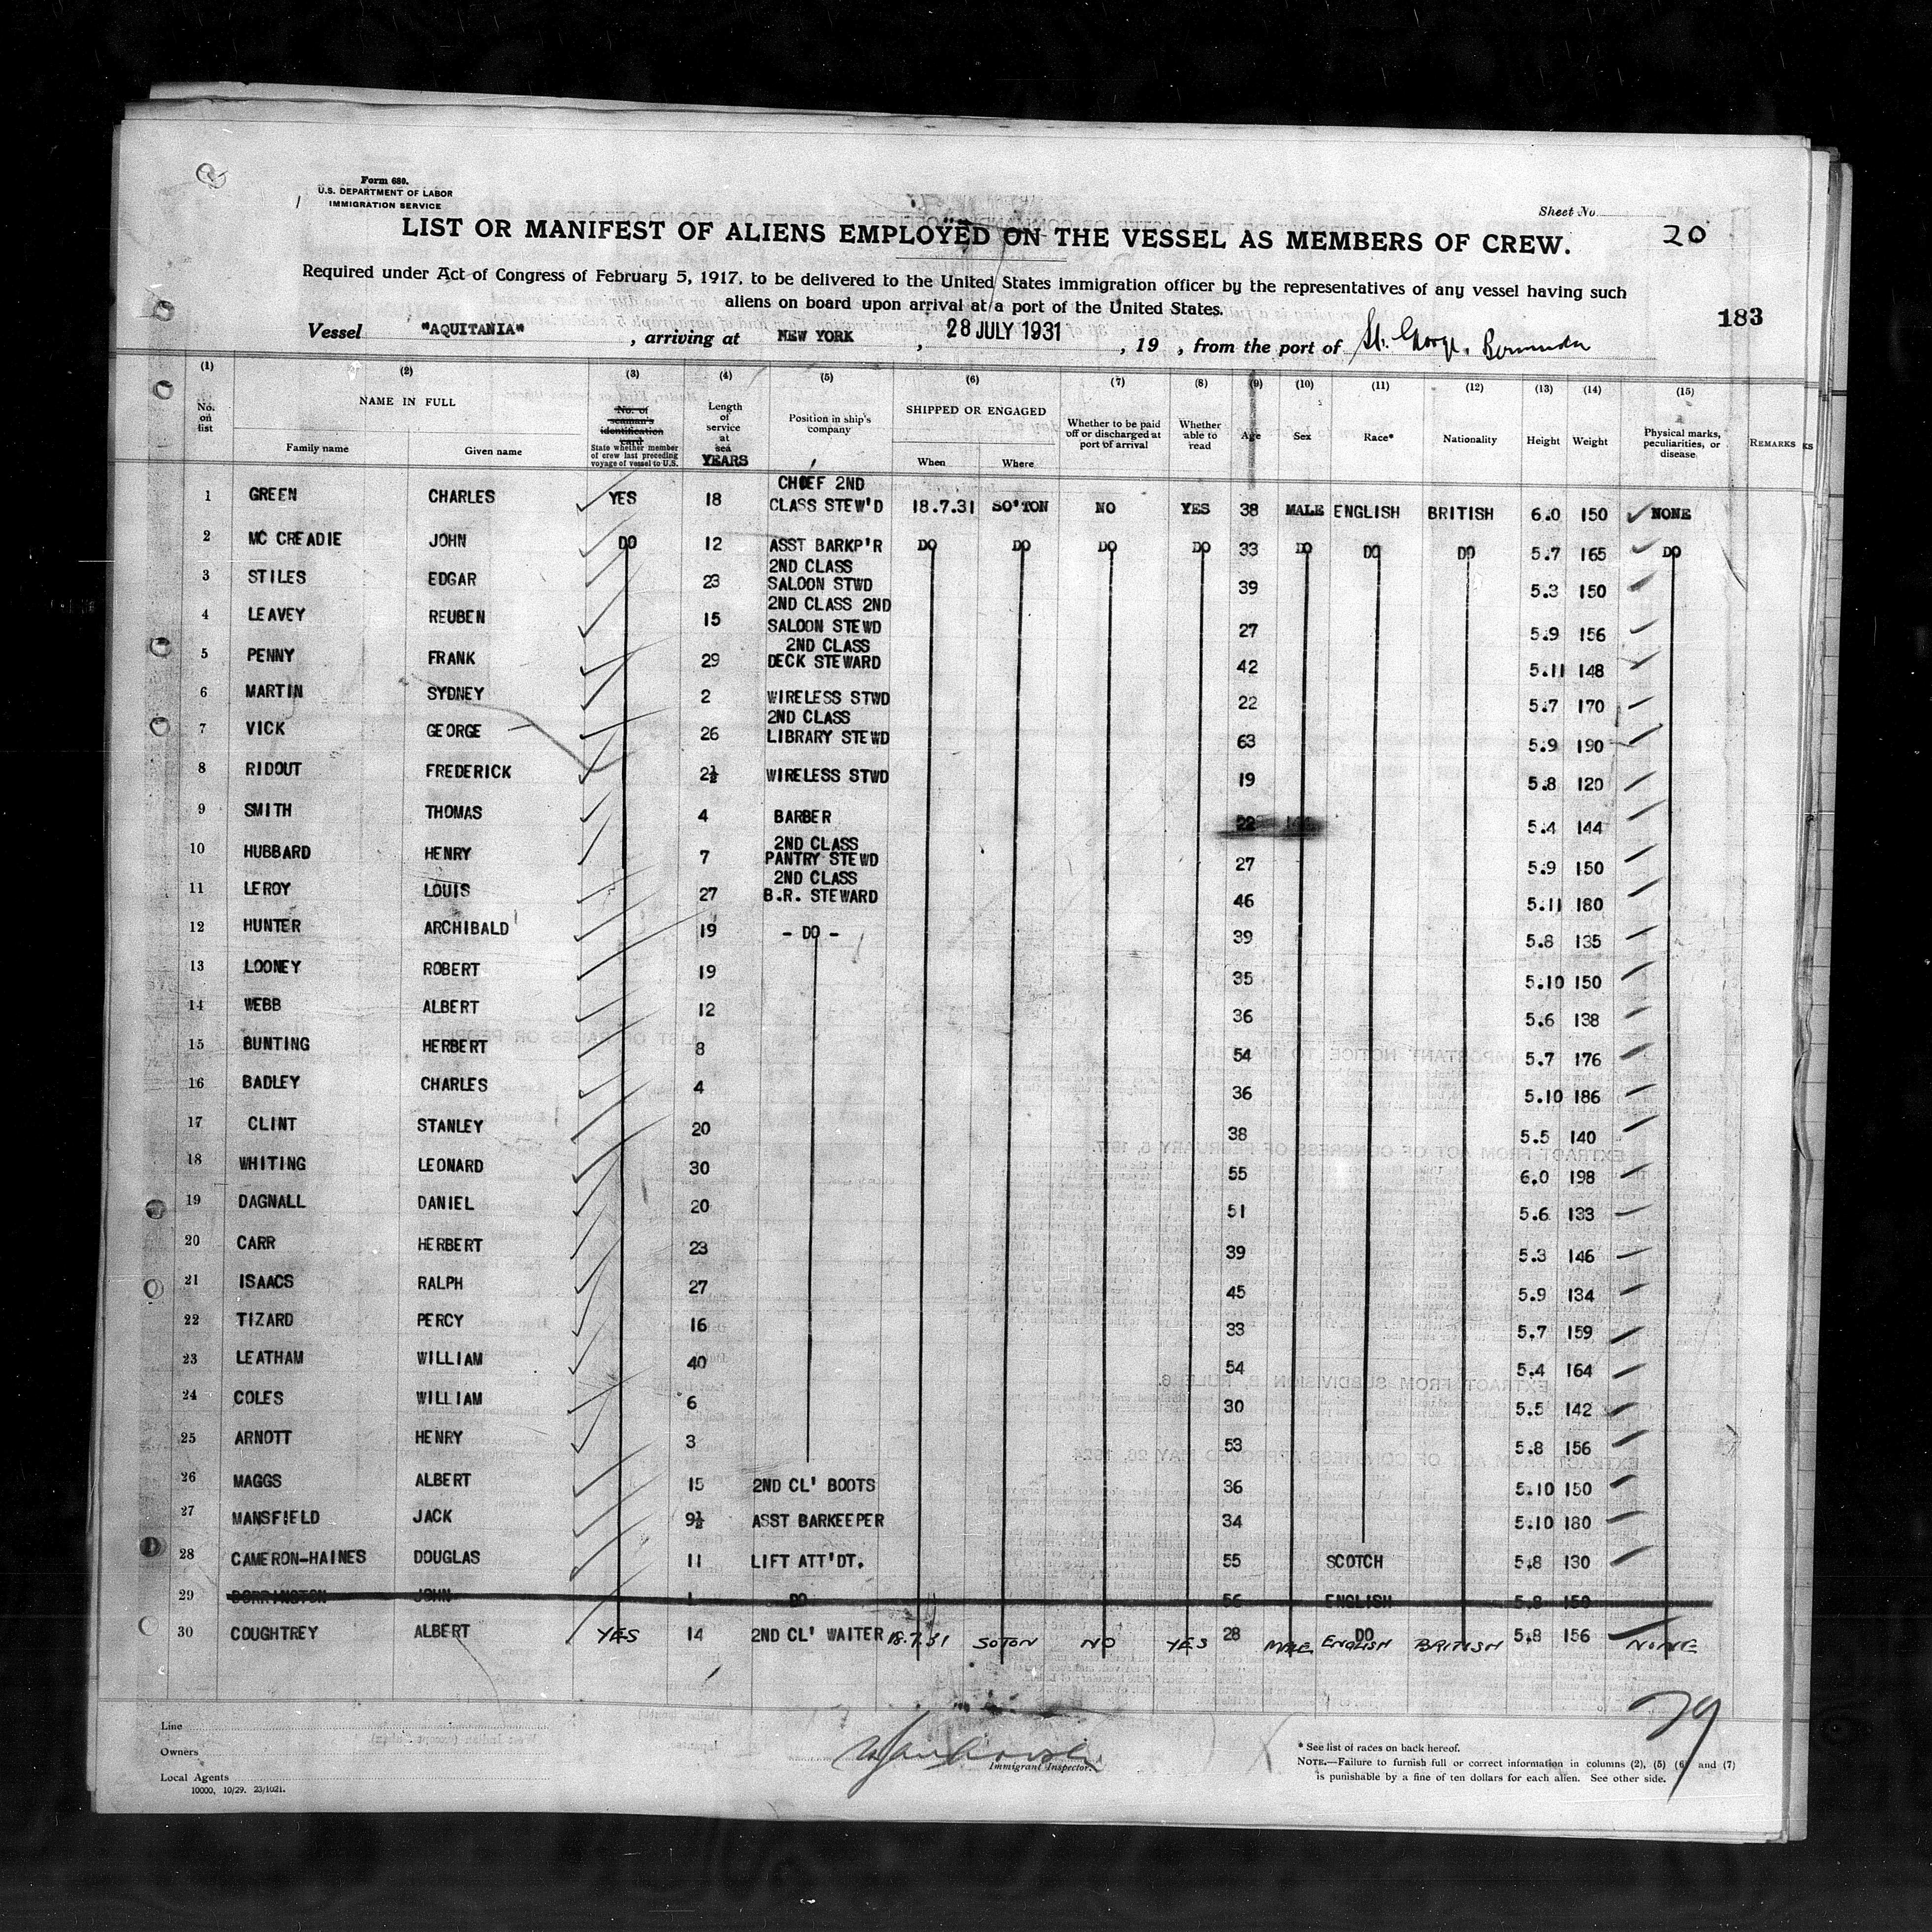 Form 680.
U.S. DEPARTMENT OF LABOR
IMMIGRATION SERVICE
Sheet No. 20
LIST OR MANIFEST OF ALIENS EMPLOYED ON THE VESSEL AS MEMBERS OF CREW.
Required under Act of Congress of February 5, 1917, to be delivered to the United States immigration officer by the representatives of any vessel having such
aliens on board upon arrival at a port of the United States.
183
Vessel "AQUITANIA", arriving at NEW YORK, 28 JULY 1931, 19 , from the port of St. George, Bermuda
(1) (2) (3) (4) (5) (6) (7) (8) (9) (10) (11) (12) (13) (14) (15)
No. on list NAME IN FULL Family name Given name No. of seaman's identification card State whether member of crew last preceding voyage of vessel to U.S. Length of service at sea YEARS Position in ship's company SHIPPED OR ENGAGED When Where Whether to be paid off or discharged at port of arrival Whether able to read Age Sex Race* Nationality Height Weight Physical marks, peculiarities, or disease REMARKS KS
1 GREEN CHARLES YES 18 CHIEF 2ND CLASS STEW'D 18.7.31 SO'TON NO YES 38 MALE ENGLISH BRITISH 6.0 150 NONE
2 MC CREADIE JOHN DO 12 ASST BARKP'R DO DO DO DO 33 DO DO DO 5.7 165 DO
3 STILES EDGAR 23 2ND CLASS SALOON STWD 39 5.3 150
4 LEAVEY REUBEN 15 2ND CLASS 2ND SALOON STEWD 27 5.9 156
5 PENNY FRANK 29 2ND CLASS DECK STEWARD 42 5.11 148
6 MARTIN SYDNEY 2 WIRELESS STWD 22 5.7 170
7 VICK GEORGE 26 2ND CLASS LIBRARY STEWD 63 5.9 190
8 RIDOUT FREDERICK 2½ WIRELESS STWD 19 5.8 120
9 SMITH THOMAS 4 BARBER 22 5.4 144
10 HUBBARD HENRY 7 2ND CLASS PANTRY STEWD 27 5.9 150
11 LEROY LOUIS 27 2ND CLASS B.R. STEWARD 46 5.11 180
12 HUNTER ARCHIBALD 19 - DO - 39 5.8 135
13 LOONEY ROBERT 19 35 5.10 150
14 WEBB ALBERT 12 36 5.6 138
15 BUNTING HERBERT 8 54 5.7 176
16 BADLEY CHARLES 4 36 5.10 186
17 CLINT STANLEY 20 38 5.5 140
18 WHITING LEONARD 30 55 6.0 198
19 DAGNALL DANIEL 20 51 5.6 133
20 CARR HERBERT 23 39 5.3 146
21 ISAACS RALPH 27 45 5.9 134
22 TIZARD PERCY 16 33 5.7 159
23 LEATHAM WILLIAM 40 54 5.4 164
24 COLES WILLIAM 6 30 5.5 142
25 ARNOTT HENRY 3 53 5.8 156
26 MAGGS ALBERT 15 2ND CL' BOOTS 36 5.10 150
27 MANSFIELD JACK 9½ ASST BARKEEPER 34 5.10 180
28 CAMERON-HAINES DOUGLAS 11 LIFT ATT'DT. 55 SCOTCH 5.8 130
29 DORRINGTON JOHN 1 DO 56 ENGLISH 5.8 150
30 COUGHTREY ALBERT YES 14 2ND CL' WAITER 18.7.31 SOTON NO YES 28 MALE DO ENGLISH BRITISH 5.8 156 NONE
29
Line
Owners
Local Agents
10000, 10/29. 23/1021.
Immigrant Inspector.
* See list of races on back hereof.
NOTE.—Failure to furnish full or correct information in columns (2), (5) (6) and (7)
is punishable by a fine of ten dollars for each alien. See other side.